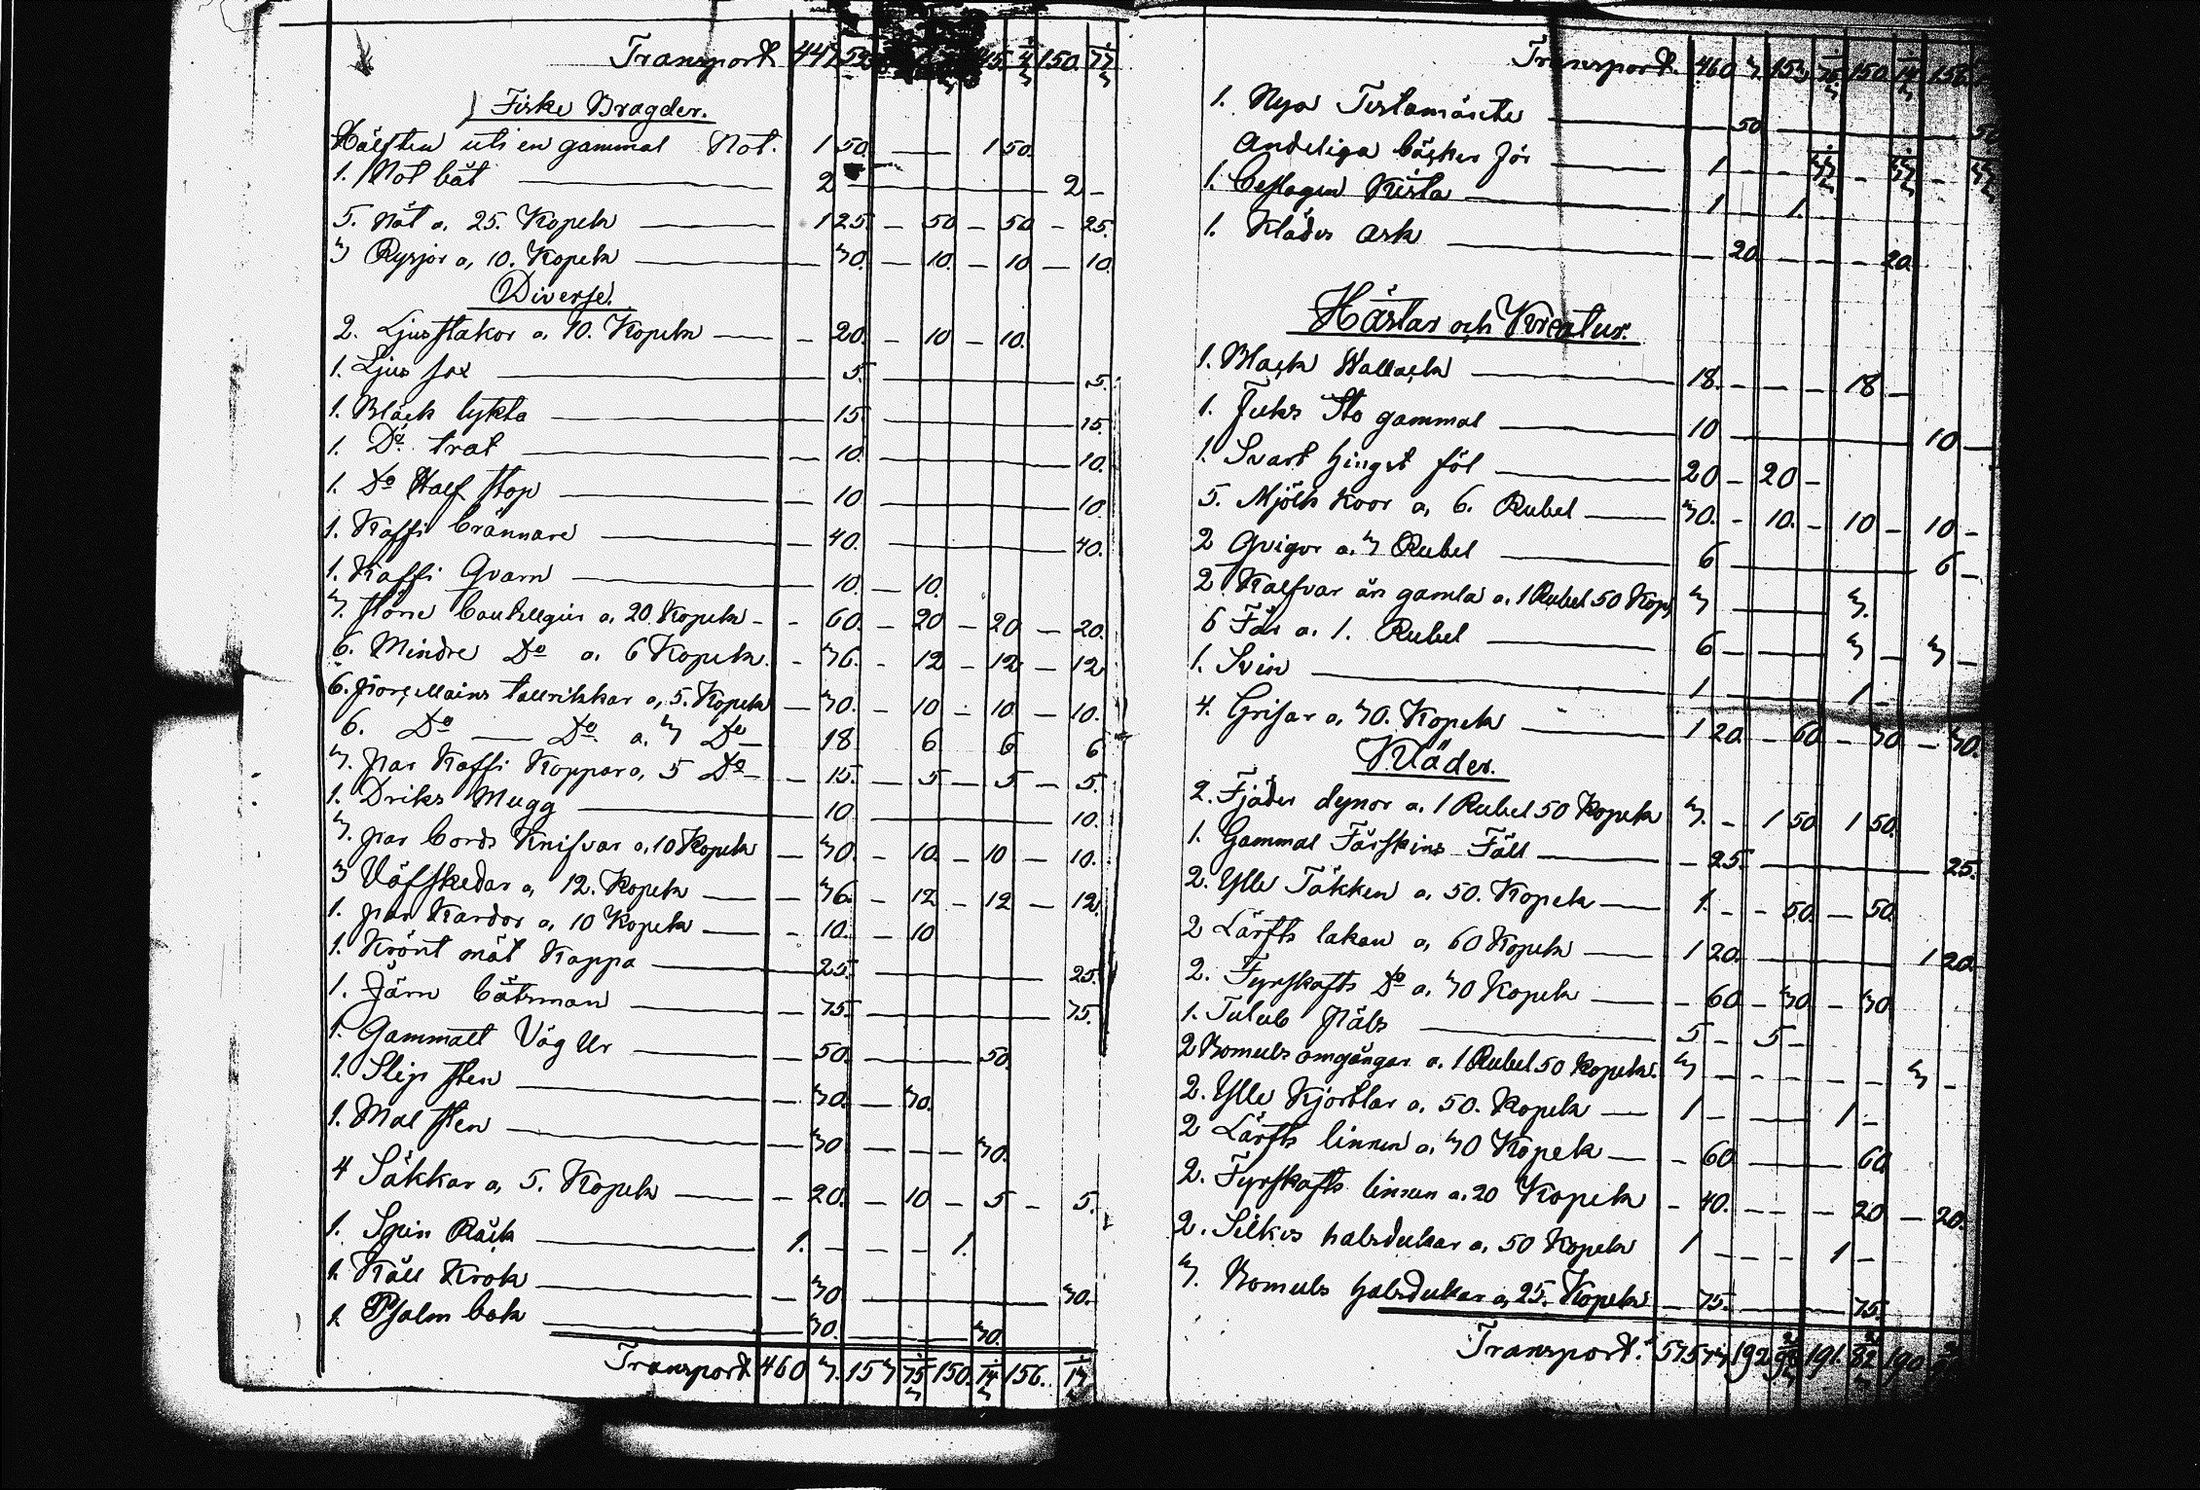 Transport 447 59 45. 150. 77
Fiske Bragder.
Hälften uti en gammal Not. 1 50. — 1 50.
1. Not båt — 2 — 2 -
5. Nät a, 25. Kopek — 1 25. — 50 — 50 — 25.
3 Rysjor a, 10. Kopek — 30. — 10. — 10 — 10.
Diverse.
2. Ljusstakar a, 10. Kopek — 20. — 10 — 10.
1. Ljus sax — 5. — 5.
1. Bläck lykta — 15. — 15.
1. Do trat — 10. — 10.
1. Do Half stop — 10 — 10.
1. Kaffi brännare — 40. — 40.
1. Kaffi Qvarn — 10. — 10.
3. större a, 20. Kopek - 60. — 20 — 20 — 20.
6. Mindre Do a, 6 Kopek. - 36. - 12 — 12 — 12
6. tallrikkar a, 5. Kopek — 30. — 10 — 10. — 10.
6. Do — Do. a. 3 Do — 18. 6. 6. 6
3. par Kaffi Koppar a, 5 Do - 15. — 5 — 5 — 5.
1. Driks Mugg — 10. — 10.
3. par bords Knifvar a, 10 Kopek — 30. — 10. — 10 — 10.
3 Väfskedar a, 12. Kopek — 36. — 12 — 12 — 12.
1. par Kardor a, 10 Kopek — 10. — 10
1. Krönt mät Kappa — 25. — 25.
1. Järn båtsman — 75. — 75.
1. Gammalt Väg Ur — 50. — 50.
1. Slip sten — 30. — 30.
1. Mal sten — 30 — 30.
4 Säkkar a, 5. Kopek — 20. — 10 — 5 — 5.
1. Spin Räck — 1. — 1.
1. Käll Krok — 30 — 30.
1. Psalm bok — 30. — 30.
Transport 460 3. 153 75 150. 14 156. 13
Transport. 460 3. 153 75 150. 14 156.
1. Nya Testamänte — 50 — 50
Andeliga bäcker för — 1 — 33 — 33 — 33
1. Beslagen Kista — 1 — 1.
1. Kläder Ask — 20. — 20.
Hästar och Kreatur.
1. Black Wallack — 18. — 18 —
1. Fuks Sto gammal — 10 — 10 —
1. Svart hingst föl — 20 - 20 -
5. Mjölk Koor a, 6. Rubel — 30. - 10. - 10 - 10 -
2 Qvigor a. 3 Rubel — 6 — 6 -
2 Kalfvar års gamla a. 1 Rubel 50 Kop. 3 — 3.
6 Får a. 1. Rubel — 6 — 3 — 3 —
1. Svin — 1 — 1 -
4. Grisar a, 30. Kopek — 1 20. — 60 — 30 — 30.
Kläder.
2. Fjäder dynor a. 1 Rubel 50 Kopek 3. - 1 50 1 50.
1. Gammal Fårskins Fäll — 25. — 25.
2. Ylle Täkken a. 50. Kopek — 1. - 50. — 50.
2 Lärfts lakan a, 60 Kopek — 1 20. — 1 20
2. Fyrskafts Do a, 30 Kopek — 60 — 30 — 30.
1. Tulub Päls — 5 — 5 —
2 Bomuls omgångar a. 1 Rubel 50 Kopek. 3 — 3 -
2. Ylle Kjortlar a, 50. Kopek — 1 — 1 —
2 Lärfts linnen a, 30 Kopek — 60 — 60
2. Fyrskafts linnen a. 20 Kopek - 40. — 20 — 20.
2. Silkes halsdukar a, 50 Kopek 1 — 1 —
3. Bomuls halsdukar a, 25. Kopek — 75. — 75.
Transport. 575 73 192 98 191. 82 190